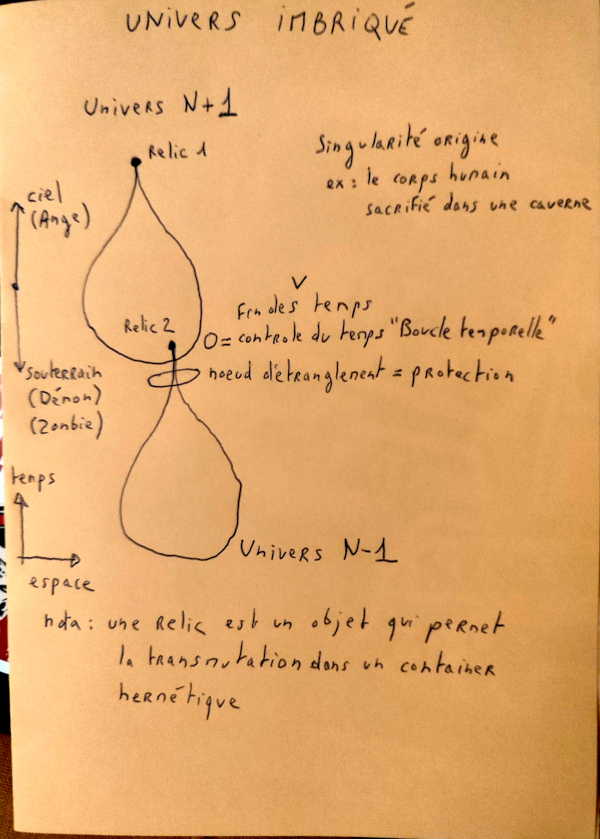 UNIVERS IMBRIQUÉ
Univers N+1
Relic 1
Singularité origine
ex : le corps humain
sacrifié dans une caverne
ciel
(Ange)
V
Fin des temps
Relic 2
O = controle du temps "Boucle temporelle"
noeud d'étranglement = protection
souterrain
(Démon)
(Zombie)
temps
espace
Univers N-1
nota : une Relic est un objet qui permet
la transmutation dans un container
hermétique